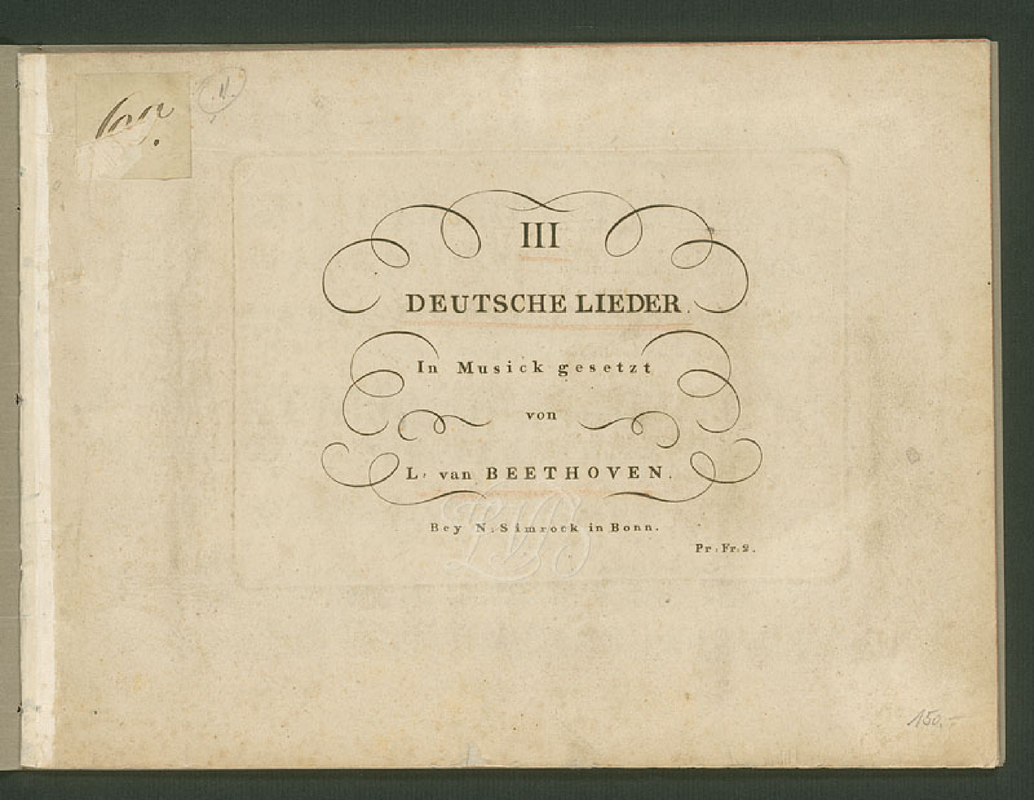 III
DEUTSCHE LIEDER.
In Musick gesetzt
von
L. van BEETHOVEN.
Bey N. Simrock in Bonn.
Pr. Fr. 2.
150.-